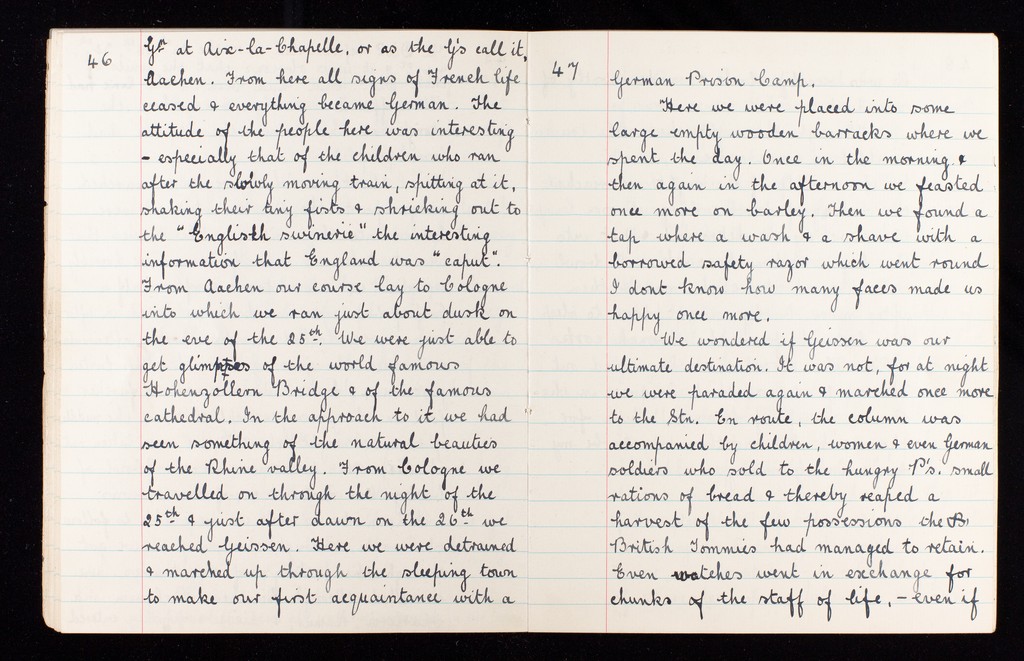 46
Gm at Aix-la-Chapelle, or as the G's call it,
Aachen. From here all signs of French life
ceased & everything became German. The
attitude of the people here was interesting
- especially that of the children who ran
after the slowly moving train, spitting at it,
shaking their tiny fists & shrieking out to
the "Englisth swinerie" the interesting
information that England was "caput".
From Aachen our course lay to Cologne
into which we ran just about dusk on
the eve of the 25th. We were just able to
get glimpses of the world famous
Hohenzollern Bridge & of the famous
cathedral. In the approach to it we had
seen something of the natural beauties
of the Rhine valley. From Cologne we
travelled on through the night of the
25th & just after dawn on the 26th we
reached Geissen. Here we were detrained
& marched up through the sleeping town
to make our first acquaintance with a
47
German Prison Camp.
Here we were placed into some
large empty wooden barracks where we
spent the day. Once in the morning &
then again in the afternoon we feasted
once more on barley. Then we found a
tap where a wash & a shave with a
borrowed safety razor which went round
I dont know how many faces made us
happy once more.
We wondered if Geissen was our
ultimate destination. It was not, for at night
we were paraded again & marched once more
to the Stn. En route, the column was
accompanied by children, women & even German
soldiers who sold to the hungry P's. small
rations of bread & thereby reaped a
harvest of the few possessions the
British Tommies had managed to retain.
Even watches went in exchange for
chunks of the staff of life, - even if